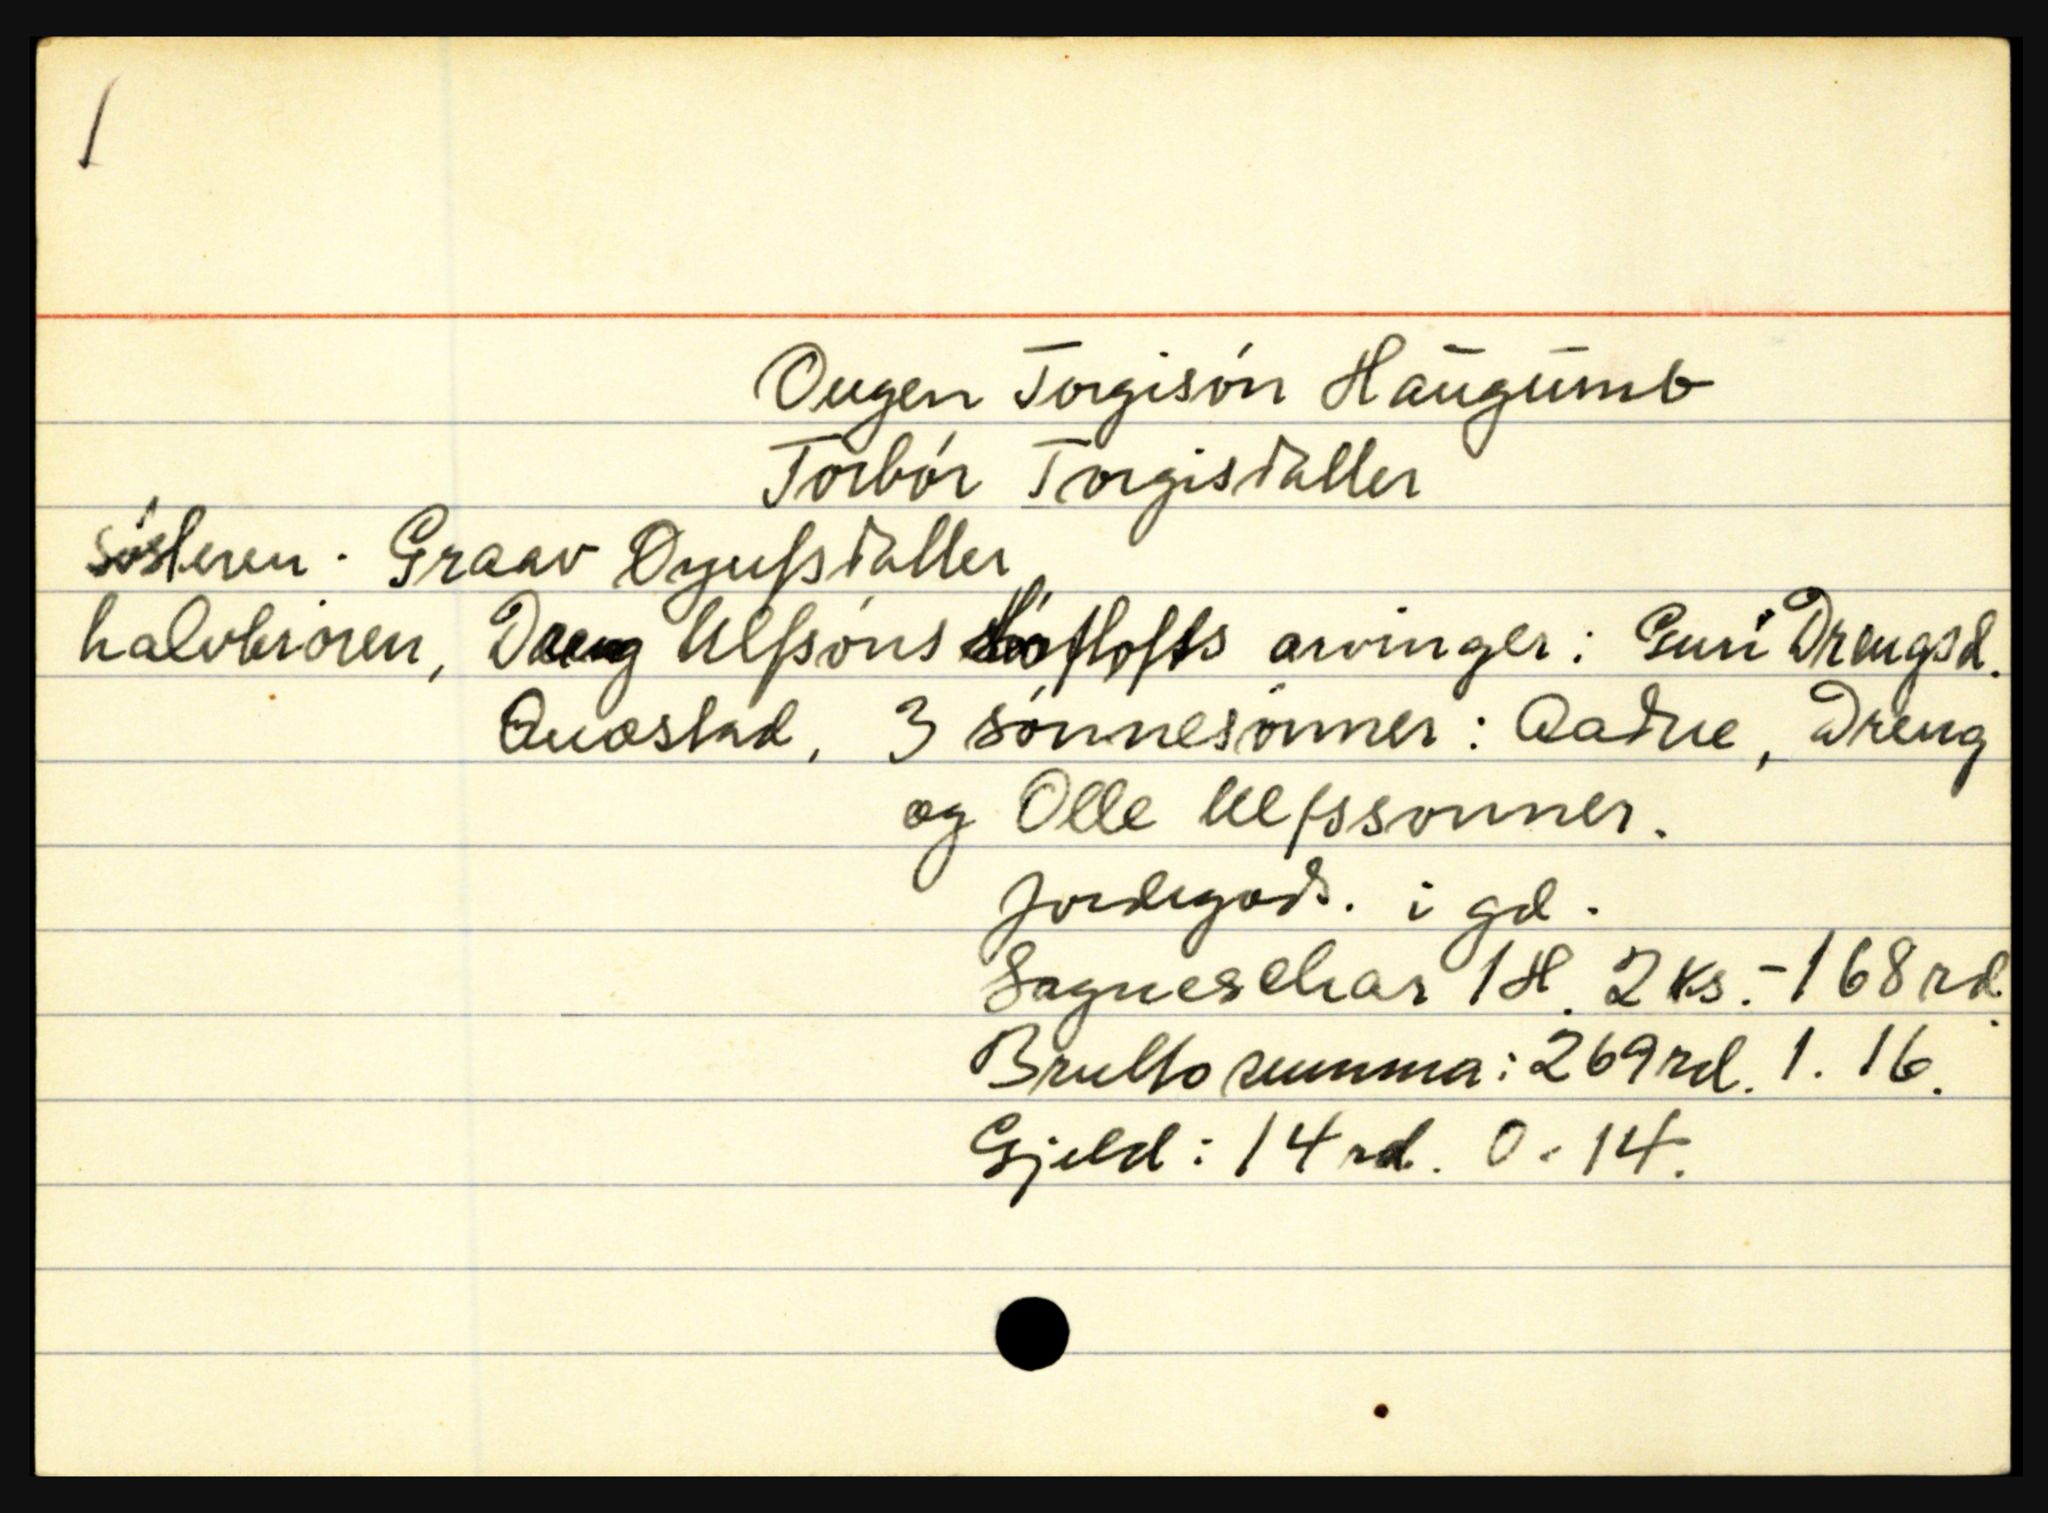 1
Ougen Torgisón Haugumb
Torbór Torgisdatter
sösteren. Graav Oyufsdatter
halvbróren, Dreng Ulfsóns arvinger: Guri Drengsd.
Quostad, 3 sónnesönner: Aadne, Dreng
og Olle Ulfssonner.
Jordegods. i gd.
Sagneschar 1H. 2 ks. - 168 rd.
Brutto summa: 269 rd. 1. 16.
Gjeld: 14 rd. 0. 14.